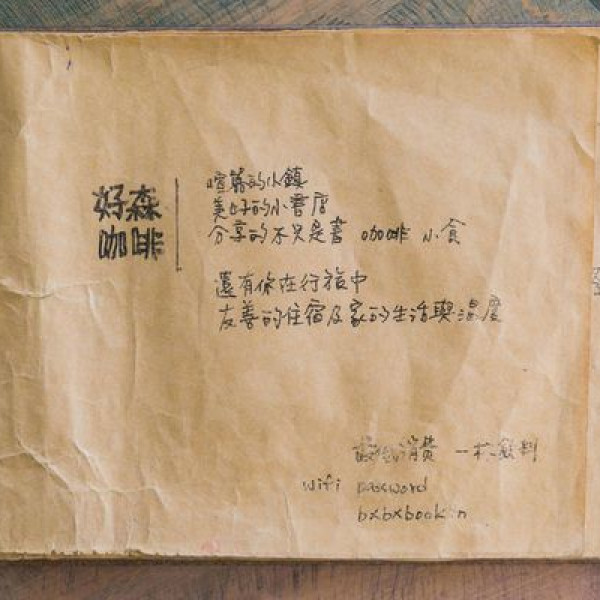 好森
咖啡
喧囂的小鎮
美好的小書店
分享的不只是書 咖啡 小食
還有你在行旅中
友善的住宿及家的生活與溫度
最低消費 一杯飲料
wifi password
bxbxbook n